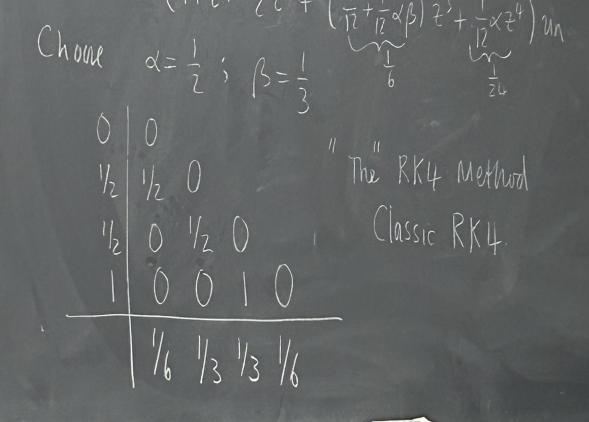 z² + (1/12 + 1/12 αβ) z³ + 1/12 αz⁴) un
1/6 1/24
Choose α = 1/2 ; β = 1/3
0 | 0
1/2 | 1/2 0
1/2 | 0 1/2 0
1 | 0 0 1 0
1/6 1/3 1/3 1/6
"The" RK4 Method
Classic RK4.